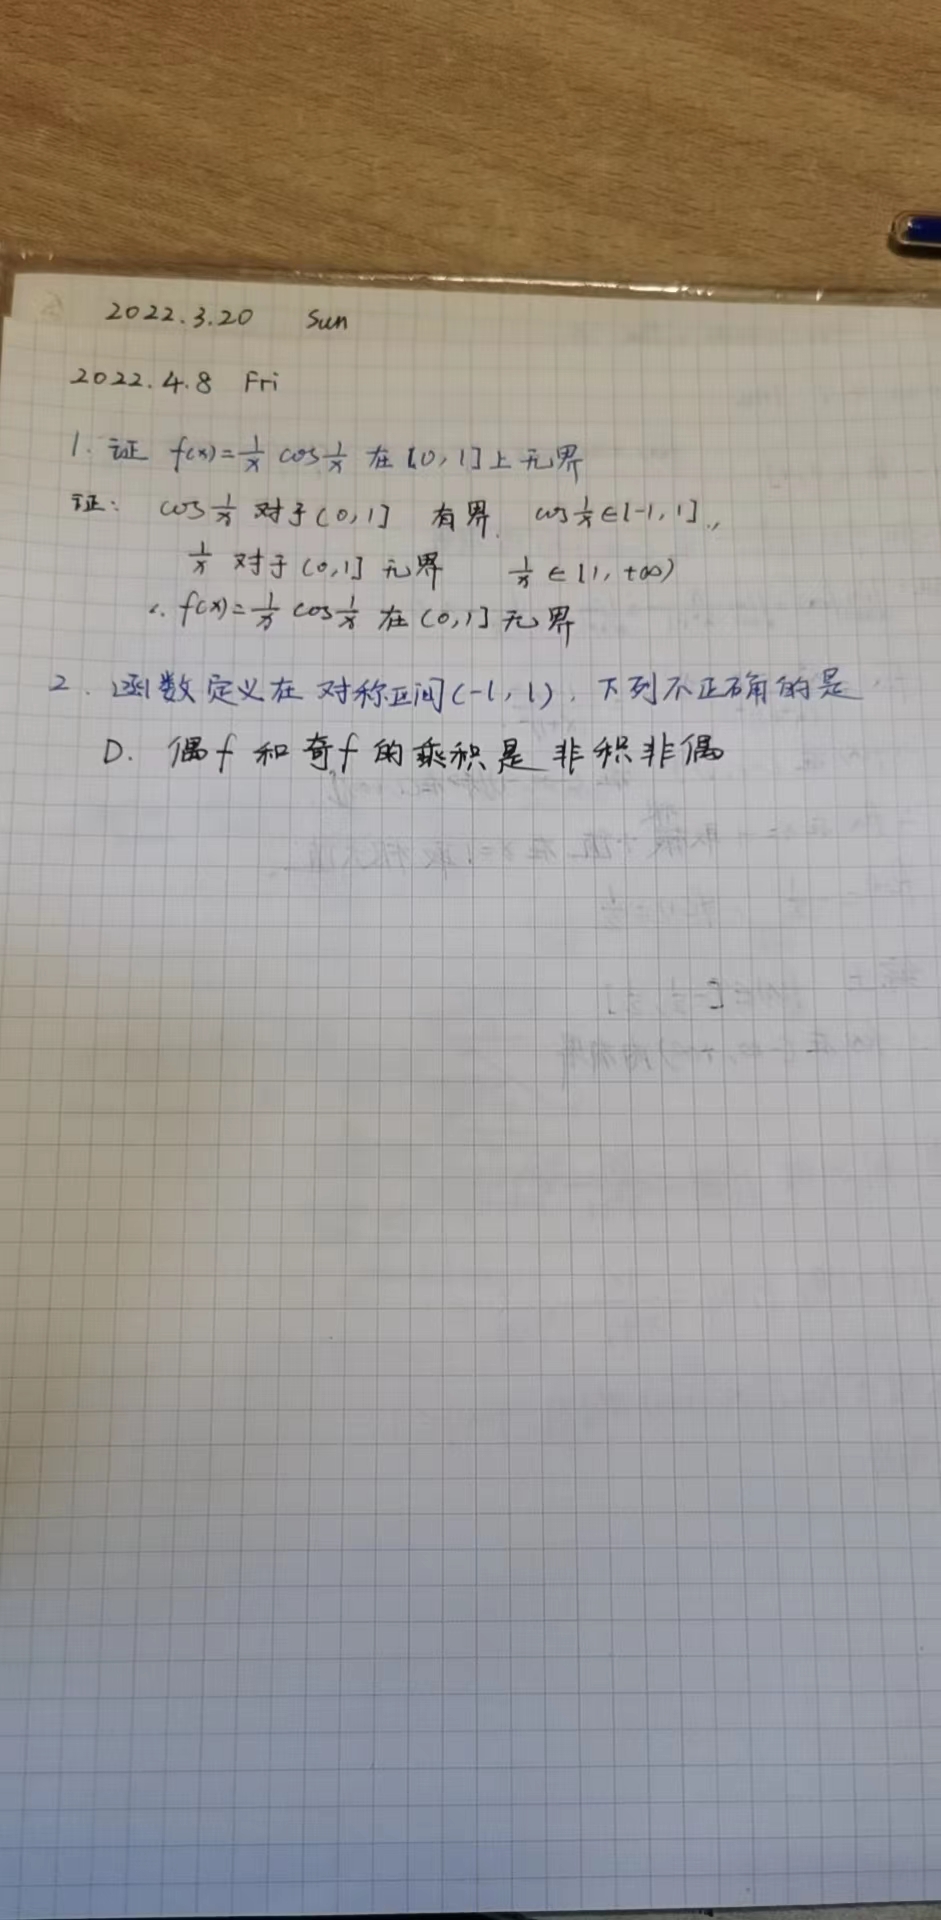 2022.3.20 Sun
2022.4.8 Fri
1. 证 f(x)=1/x cos1/x 在[0,1]上无界
证: cos1/x 对于(0,1] 有界. cos1/x∈[-1,1].,
1/x 对于(0,1] 无界 1/x∈[1,+∞)
∴ f(x)=1/x cos1/x 在(0,1]无界
2. 函数定义在对称区间(-1,1), 下列不正确的是
D. 偶f和奇f的乘积是非积非偶